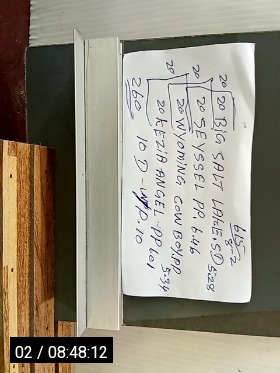 6/5-
8-2
20 20 BIG SALT LAKE.SD 5:28
20 SEYSSEL PP. 6.46
20 20 WYOMING COW BOY.PP 5:34
20 KEZIA ANGEL PP 601
10 D - W/P. 10
260
02 / 08:48:12